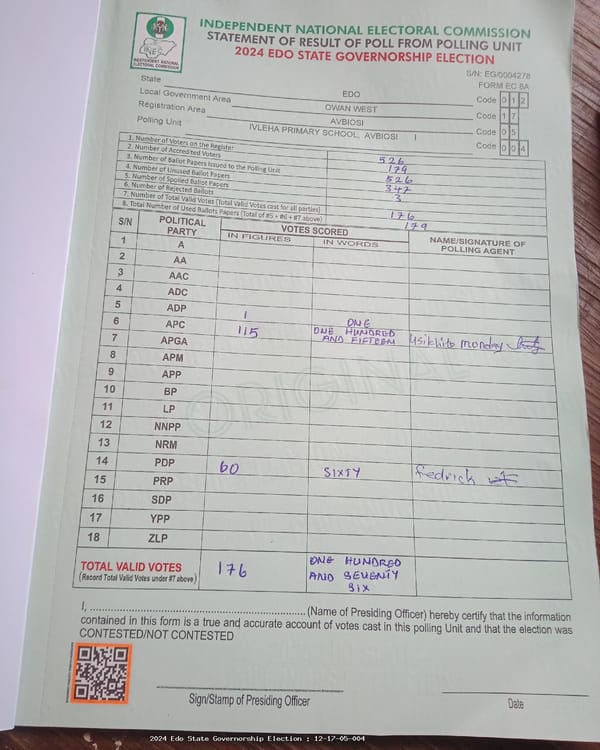 INDEPENDENT NATIONAL ELECTORAL COMMISSION
STATEMENT OF RESULT OF POLL FROM POLLING UNIT
2024 EDO STATE GOVERNORSHIP ELECTION
INEC
INDEPENDENT NATIONAL ELECTORAL COMMISSION
S/N: EG/0004278
FORM EC 8A
State EDO Code 0 1 2
Local Government Area OWAN WEST Code 1 7
Registration Area AVBIOSI Code 0 5
Polling Unit IVLEHA PRIMARY SCHOOL, AVBIOSI I Code 0 0 4
1. Number of Voters on the Register 526
2. Number of Accredited Voters 179
3. Number of Ballot Papers Issued to the Polling Unit 526
4. Number of Unused Ballot Papers 347
5. Number of Spoiled Ballot Papers
6. Number of Rejected Ballots 3
7. Number of Total Valid Votes (Total Valid Votes cast for all parties) 176
8. Total Number of Used Ballots Papers (Total of #5 + #6 + #7 above) 179
S/N POLITICAL PARTY VOTES SCORED NAME/SIGNATURE OF POLLING AGENT
IN FIGURES IN WORDS
1 A
2 AA
3 AAC
4 ADC
5 ADP 1 ONE
6 APC 115 ONE HUNDRED AND FIFTEEN monday
7 APGA
8 APM
9 APP
10 BP
11 LP
12 NNPP
13 NRM
14 PDP 60 SIXTY fedrick
15 PRP
16 SDP
17 YPP
18 ZLP
ORIGINAL
TOTAL VALID VOTES 176 ONE HUNDRED AND SEVENTY SIX
(Record Total Valid Votes under #7 above)
I, ............................................................(Name of Presiding Officer) hereby certify that the information
contained in this form is a true and accurate account of votes cast in this polling Unit and that the election was
CONTESTED/NOT CONTESTED
Sign/Stamp of Presiding Officer Date
2024 Edo State Governorship Election : 12-17-05-004